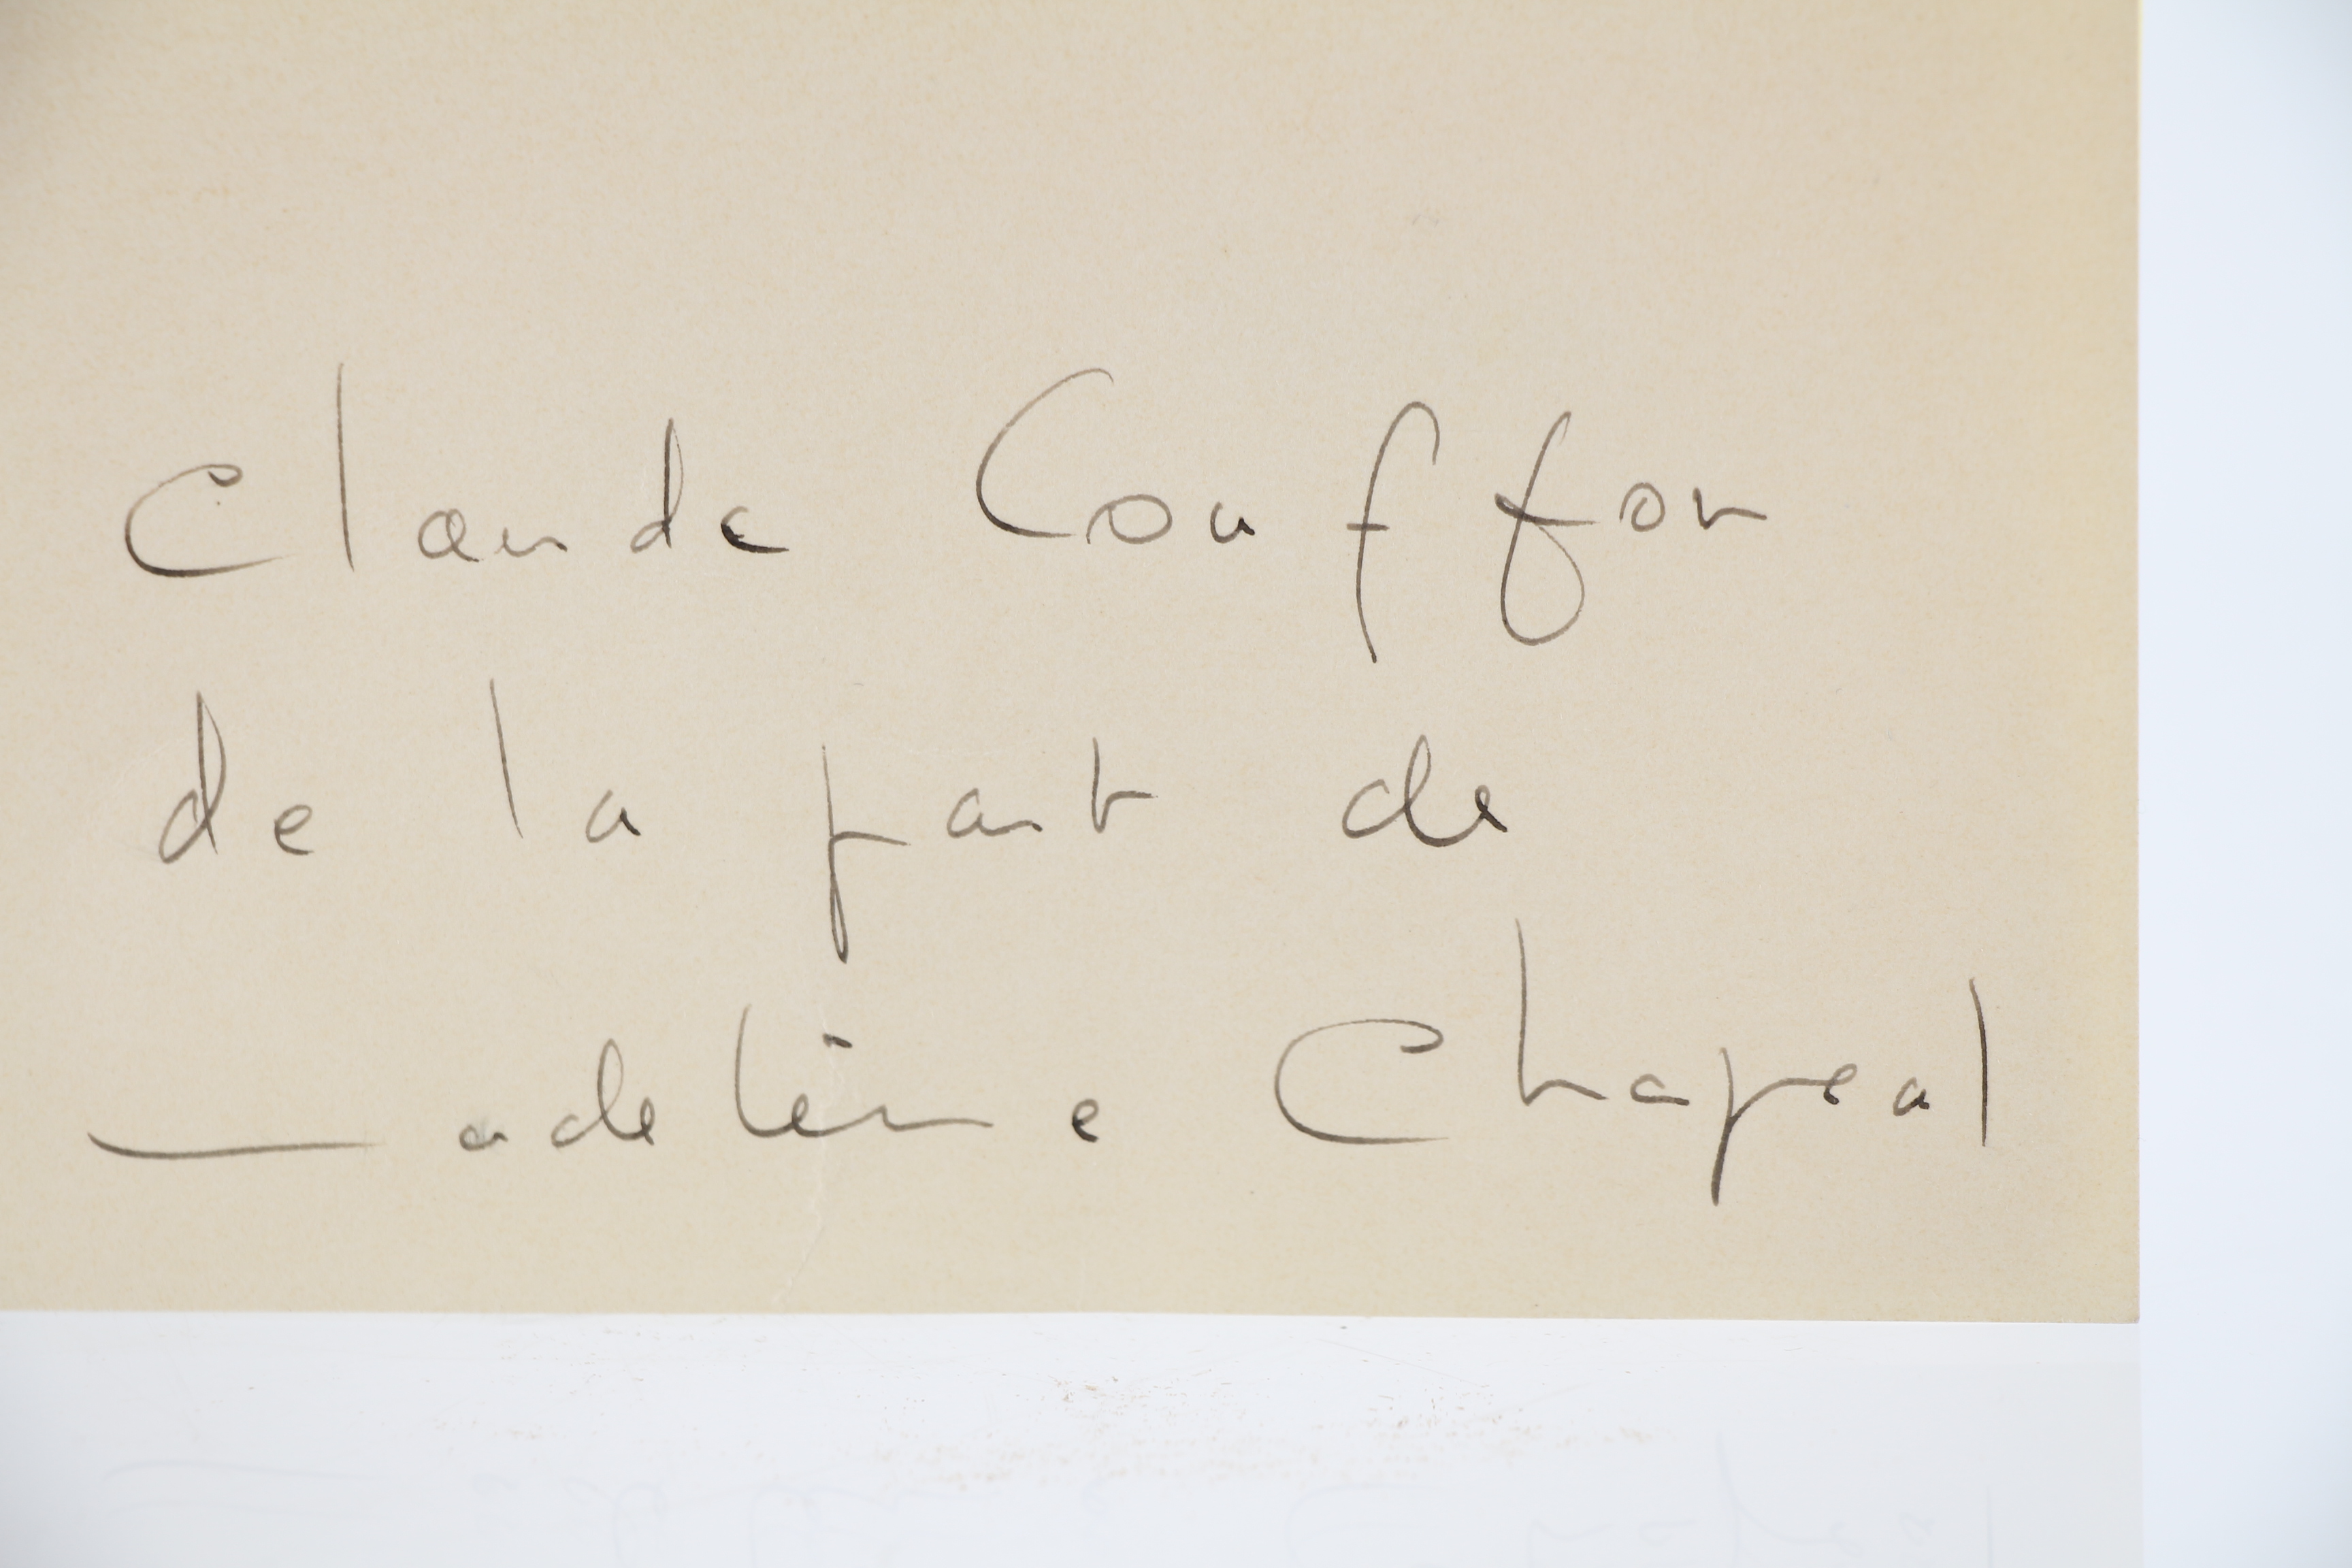 Claude Couffon
de la part de
Madeleine Chapsal